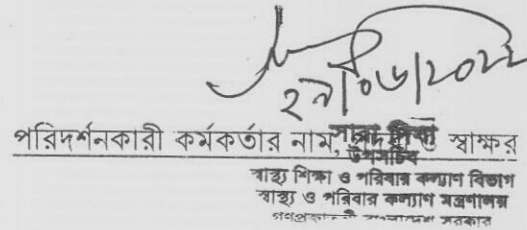 ২৭/০৬/২০২২
পরিদর্শনকারী কর্মকর্তার নাম, ও স্বাক্ষর
উপসচিব
স্বাস্থ্য শিক্ষা ও পরিবার কল্যাণ বিভাগ
স্বাস্থ্য ও পরিবার কল্যাণ মন্ত্রণালয়
গণপ্রজাতন্ত্রী বাংলাদেশ সরকার